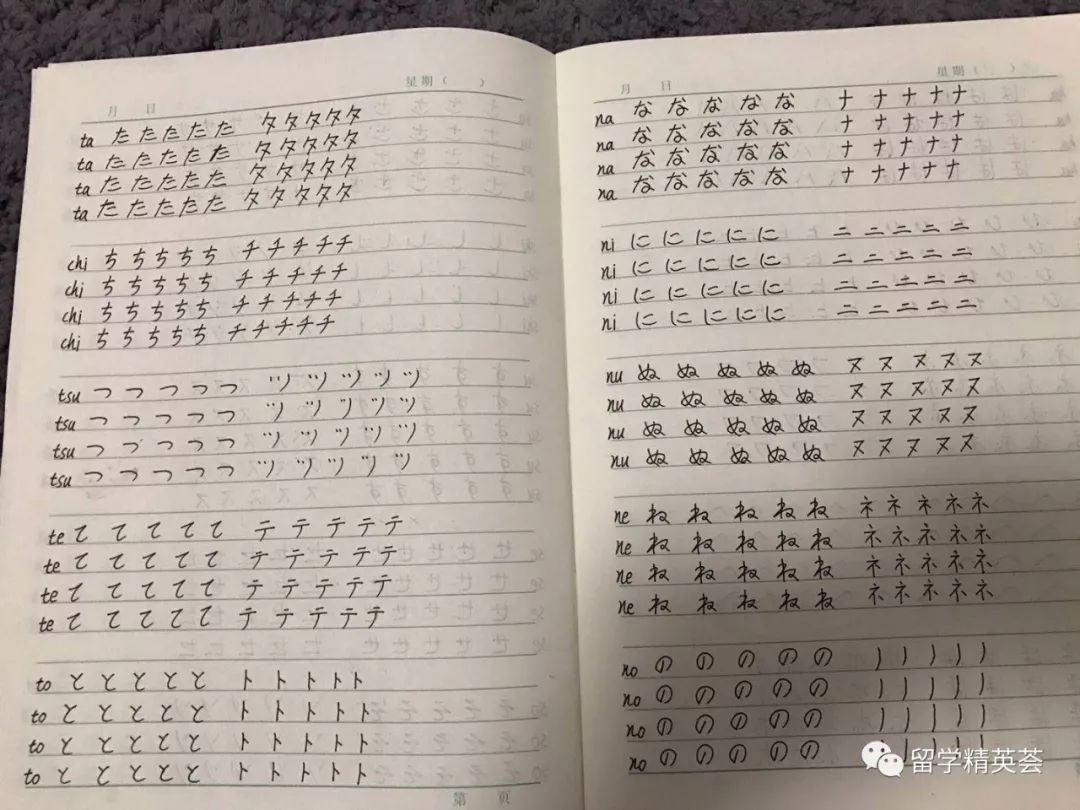 月 日 星期( )
ta たたたたた タタタタタ
ta たたたたた タタタタタ
ta たたたたた タタタタタ
ta たたたたた タタタタタ
chi ちちちちち チチチチチ
chi ちちちちち チチチチチ
chi ちちちちち チチチチチ
chi ちちちちち チチチチチ
tsu つつつつつ ツツツツツ
tsu つつつつつ ツツツツツ
tsu つつつつつ ツツツツツ
tsu つつつつつ ツツツツツ
te ててててて テテテテテ
te ててててて テテテテテ
te ててててて テテテテテ
te ててててて テテテテテ
to ととととと トトトトト
to ととととと トトトトト
to ととととと トトトトト
to ととととと トトトトト
第 页
月 日 星期( )
na ななななな ナナナナナ
na ななななな ナナナナナ
na ななななな ナナナナナ
na ななななな ナナナナナ
ni ににににに ニニニニニ
ni ににににに ニニニニニ
ni ににににに ニニニニニ
ni ににににに ニニニニニ
nu ぬぬぬぬぬ ヌヌヌヌヌ
nu ぬぬぬぬぬ ヌヌヌヌヌ
nu ぬぬぬぬぬ ヌヌヌヌヌ
nu ぬぬぬぬぬ ヌヌヌヌヌ
ne ねねねねね ネネネネネ
ne ねねねねね ネネネネネ
ne ねねねねね ネネネネネ
ne ねねねねね ネネネネネ
no ののののの ノノノノノ
no ののののの ノノノノノ
no ののののの ノノノノノ
no ののののの ノノノノノ
留学精英荟